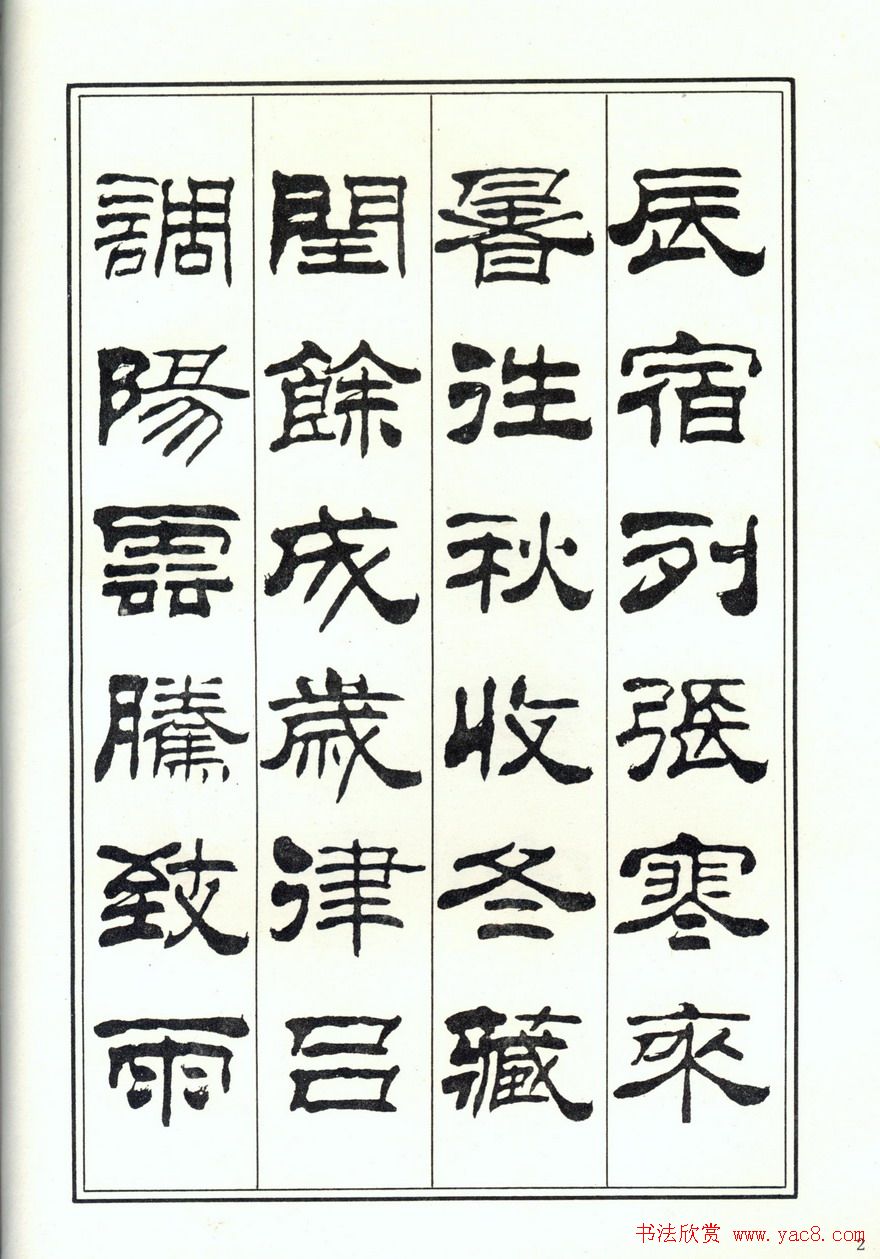 辰宿列張寒來
暑往秋收冬藏
閏餘成歲律吕
調陽雲騰致雨
书法欣赏 www.yac8.com
2